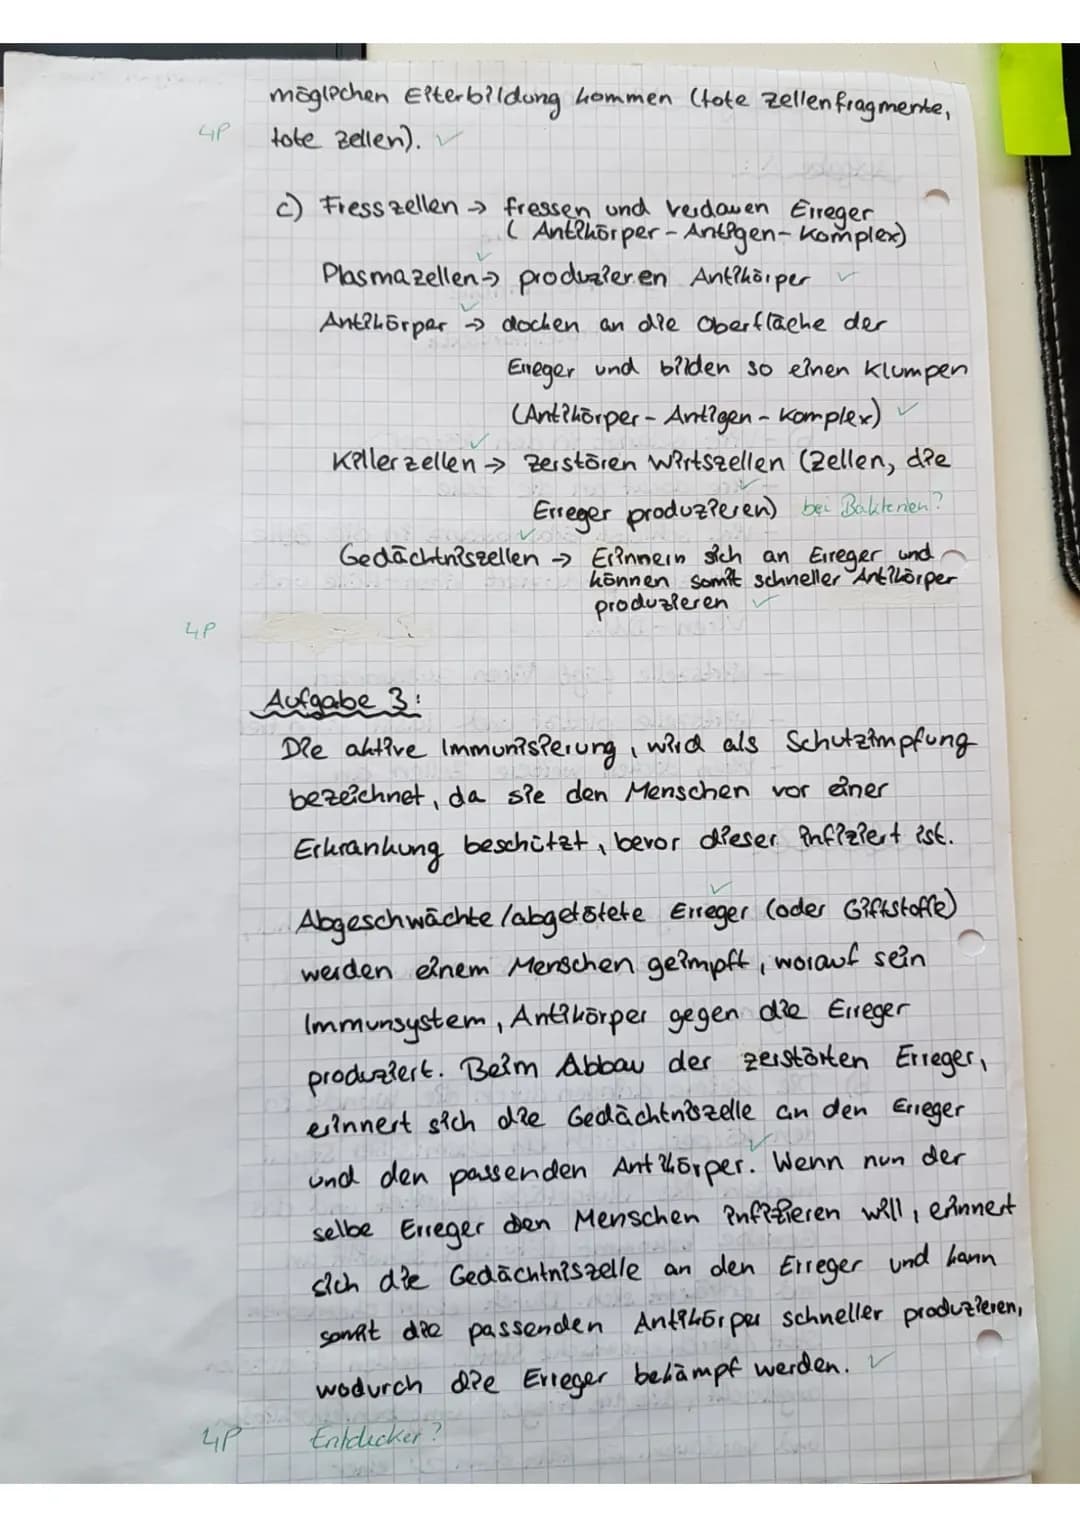 möglichen Eiterbildung kommen (tote Zellenfragmente,
4P tote Zellen). ✓
c) Fresszellen → fressen und verdauen Erreger
(Antikörper-Antigen-Komplex)
Plasmazellen → produzieren Antikörper ✓
Antikörper → docken an die Oberfläche der
Erreger und bilden so einen Klumpen
(Antikörper-Antigen-Komplex) ✓
Killerzellen → zerstören Wirtszellen (Zellen, die
Erreger produzieren) bei Bakterien?
Gedächtniszellen → Erinnern sich an Erreger und
können somit schneller Antikörper
produzieren ✓
4P
Aufgabe 3:
Die aktive Immunisierung, wird als Schutzimpfung
bezeichnet, da sie den Menschen vor einer
Erkrankung beschützt, bevor dieser infiziert ist.
Abgeschwächte/abgetötete Erreger (oder Giftstoffe)
werden einem Menschen geimpft, worauf sein
Immunsystem, Antikörper gegen die Erreger
produziert. Beim Abbau der zerstörten Erreger,
erinnert sich die Gedächtniszelle an den Erreger
und den passenden Antikörper. Wenn nun der
selbe Erreger den Menschen infizieren will, erinnert
sich die Gedächtniszelle an den Erreger und kann
somit die passenden Antikörper schneller produzieren,
wodurch die Erreger bekämpf werden. ✓
4P Entdecker?